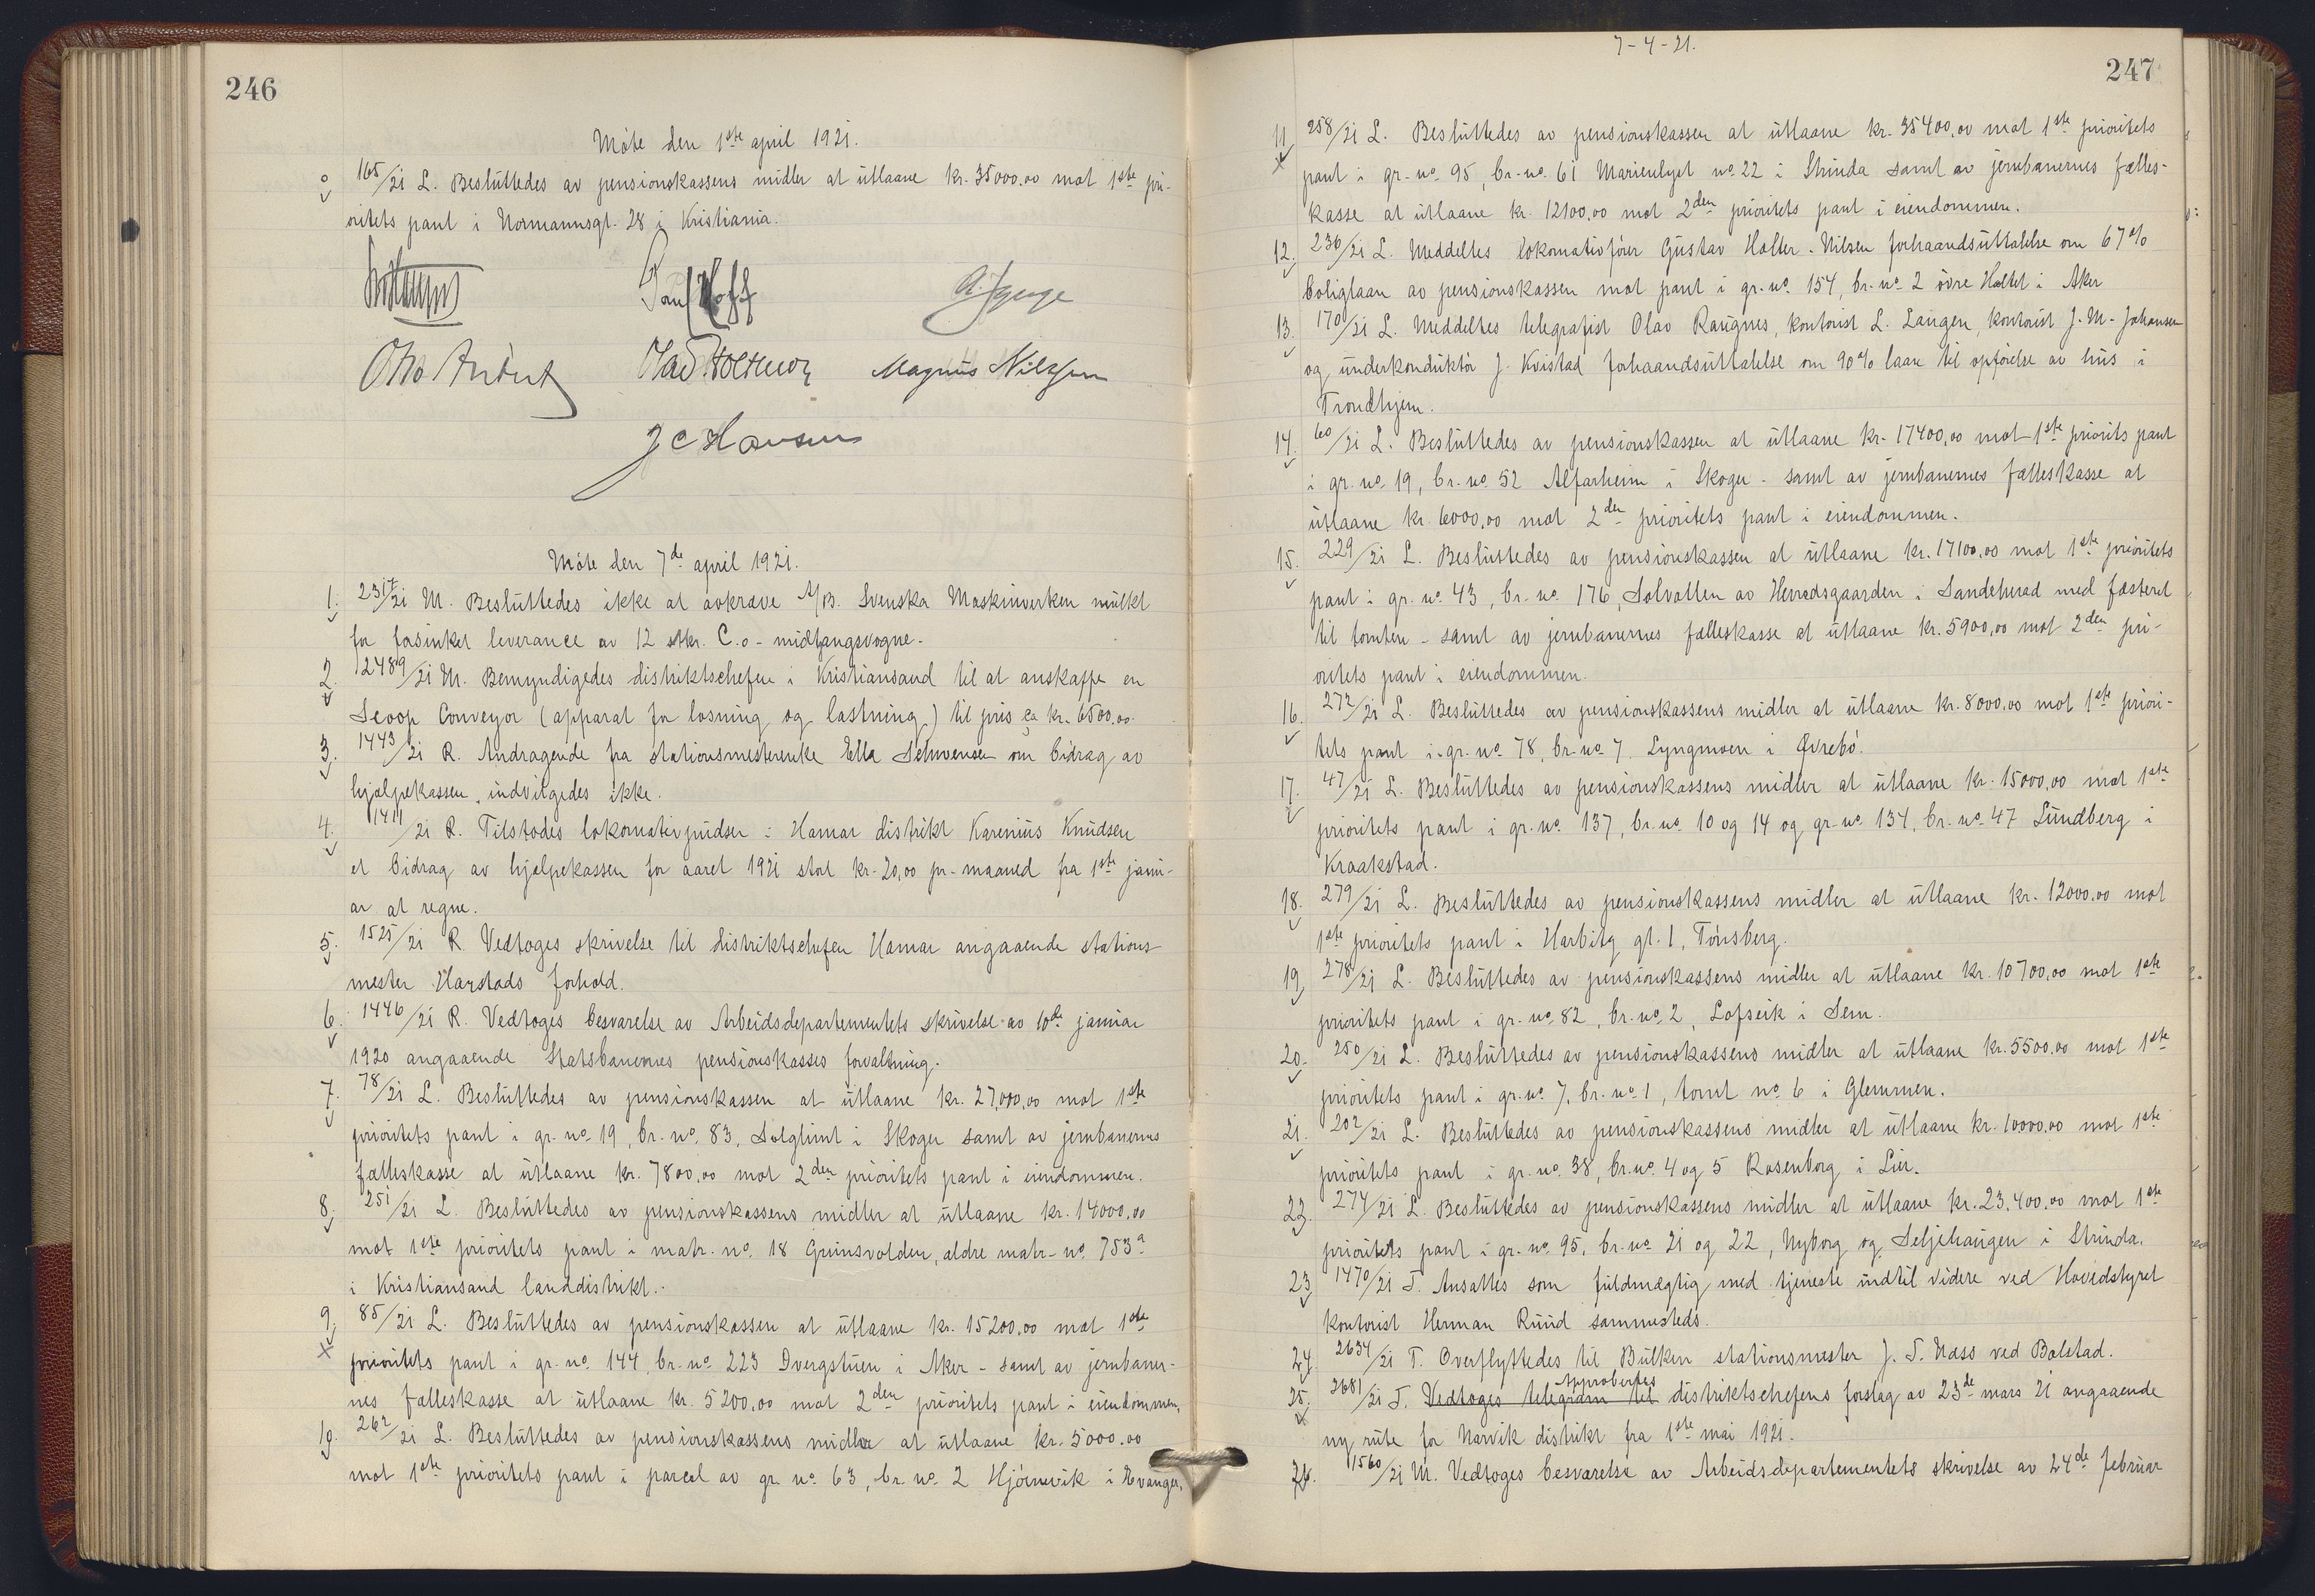 246
Møte den 1ste april 1921.
165/21 L. Besluttedes av pensionskassens midler at utlaane kr. 35000.00 mot 1ste pri-
oritets pant i Normannsgt. 28 i Kristiania.
Magnus Nilssen
J C Hansen
Møte den 7de april 1921.
1. 2317/21 M. Besluttedes ikke at avkræve A/B. Svenska Maskinverken mulkt
for forsinket leverance av 12 stkr. C.o - midtgangsvogne.
2. 2489/21 M. Bemyndigedes distriktschefen i Kristiansand til at anskaffe en
Scoop Conveyor (apparat for losning og lastning) til pris ca kr. 6500.00.
3. 1443/21 R. Andragende fra stationsmesterenke Ella Schwensen om bidrag av
hjælpekassen, indvilgedes ikke.
4. 1411/21 R. Tilstodes lokomativpudser i Hamar distrikt Karenius Knudsen
et bidrag av hjælpekassen for aaret 1921 stort kr. 20,00 pr. maaned fra 1ste janu-
ar at regne.
5. 1525/21 R. Vedtoges skrivelse til distriktschefen Hamar angaaende stations-
mester Harstads forhold.
6. 1446/21 R. Vedtoges besvarelse av Arbeidsdepartementets skrivelse av 10de januar
1920 angaaende Statsbanernes pensionskasses forvaltning.
7. 78/21 L. Besluttedes av pensionskassen at utlaane kr. 27,000,00 mot 1ste
prioritets pant i gr. no. 19, br. no. 83, Solglimt i Skoger samt av jernbanernes
fælleskasse at utlaane kr. 7800,00 mot 2den prioritets pant i eiendommen.
8. 251/21 L. Besluttedes av pensionskassens midler at utlaane kr. 14000,00
mot 1ste prioritets pant i matr. no. 18 Grimsvolden, ældre matr. no. 753a
i Kristiansand landdistrikt.
9. 85/21 L. Besluttedes av pensionskassen at utlaane kr. 15200,00 mot 1ste
prioritets pant i gr. no. 144, br. no. 223 Dvergstuen i Aker - samt av jernbaner-
nes fælleskasse at utlaane kr. 5200,00 mot 2den prioritets pant i eiendommen.
10. 262/21 L. Besluttedes av pensionskassens midler at utlaane kr. 5000.00
mot 1ste prioritets pant i parcel av gr. no. 63, br. no. 2 Hjørnevik i Evanger.
7-4-21.
247
11 258/21 L. Besluttedes av pensionskassen at utlaane kr. 35400,00 mot 1ste prioritets
pant i gr. no. 95, br. no. 61 Marienlyst no. 22 i Strinda samt av jernbanernes fælles-
kasse at utlaane kr. 12100,00 mot 2den prioritets pant i eiendommen.
12. 236/21 L. Meddeltes lokomotivfører Gustav Halter-Nilsen forhaandsuttalelse om 67%
boliglaan av pensionskassen mot pant i gr. no. 154, br. no. 2 øvre Holtet i Aker
13. 170/21 L. Meddeltes telegrafist Olav Raugnes, kontorist L. Laugen, kontorist J. M. Johansen
og underkonduktør J. Kvistad forhaandsuttalelse om 90% laan til opførelse av hus i
Trondhjem.
14. 60/21 L. Besluttedes av pensionskassen at utlaane kr. 17400,00 mot 1ste priorits pant
i gr. no. 19, br. no. 52 Alfarheim i Skoger - samt av jernbanernes fælleskasse at
utlaane kr. 6000,00 mot 2den prioritets pant i eiendommen.
15. 229/21 L. Besluttedes av pensionskassen at utlaane kr. 17100,00 mot 1ste prioritets
pant i gr. no. 43, br. no. 176, Solvatten av Herradsgaarden i Sandeherad med fæsteret
til tomten - samt av jernbanernes fælleskasse at utlaane kr. 5900,00 mot 2den pri-
oritets pant i eiendommen.
16. 272/21 L. Besluttedes av pensionskassens midler at utlaane kr. 8000,00 mot 1ste priori-
tets pant i gr. no. 78, br. no. 7. Lyngmoen i Øvrebø.
17. 47/21 L. Besluttedes av pensionskassens midler at utlaane kr. 15000,00 mot 1ste
prioritets pant i gr. no. 137, br. no. 10 og 14 og gr. no. 134, br. no. 47 Lundberg i
Kraakstad.
18. 279/21 L. Besluttedes av pensionskassens midler at utlaane kr. 12000.00 mot
1ste prioritets pant i Harbitz gt. 1, Tønsberg.
19. 278/21 L. Besluttedes av pensionskassens midler at utlaane kr. 10700,00 mot 1ste
prioritets pant i gr. no. 82, br. no. 2, Lofseik i Sem.
20. 250/21 L. Besluttedes av pensionskassens midler at utlaane kr. 5500.00 mot 1ste
prioritets pant i gr. no. 7, br. no. 1, tomt no. 6 i Glemmen.
21. 202/21 L. Besluttedes av pensionskassens midler at utlaane kr. 10000.00 mot 1ste
prioritets pant i gr. no. 38, br. no. 4 og 5 Rosenborg i Lier.
22. 274/21 L. Besluttedes av pensionskassens midler at utlaane kr. 23.400,00 mot 1ste
prioritets pant i gr. no. 95, br. no. 21 og 22, Nyborg og Seljehaugen i Strinda.
23 1470/21 T. Ansattes som fuldmægtig med tjeneste indtil videre ved Hovedstyret
kontorist Herman Ruud sammesteds.
24. 2634/21 T. Overflyttedes til Bulken stationsmester J. T. Næss ved Bolstad.
Approbertes
25. 2681/21 T. Vedtoges telegram til distriktschefens forslag av 23de mars 21 angaaende
ny rute for Narvik distrikt fra 1ste mai 1921.
26. 1560/21 M. Vedtoges besvarelse av Arbeidsdepartementets skrivelse av 24de februar